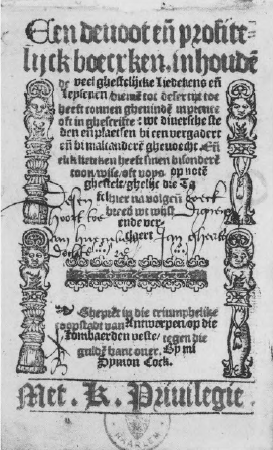 Een devoot eñ profitelijck boecxken, inhoudēde
veel ghestelijcke Liedekens eñ
Leysenen, diemē tot deser tijt toe
heeft connen ghevindē in prente
oft in ghescrifte: wt diversche steden
en plaetsen bi een vergadert
en bi malcandere ghevoecht. Eñ
elck liedeken heeft sinen bisonderē
toon, wise, oft voys, op notē
ghestelt, ghelijc die Ta
hier na volgen
breet wt wijst
Desen
hoort toe
Jan
Gheprēt in die triumphelike
coopstadt van Antwerpen op die
Lombaerden veste, tegen die
guldē hant over. By mi
Symon Cock.
Met. K. Privilegie.
HAARLEM